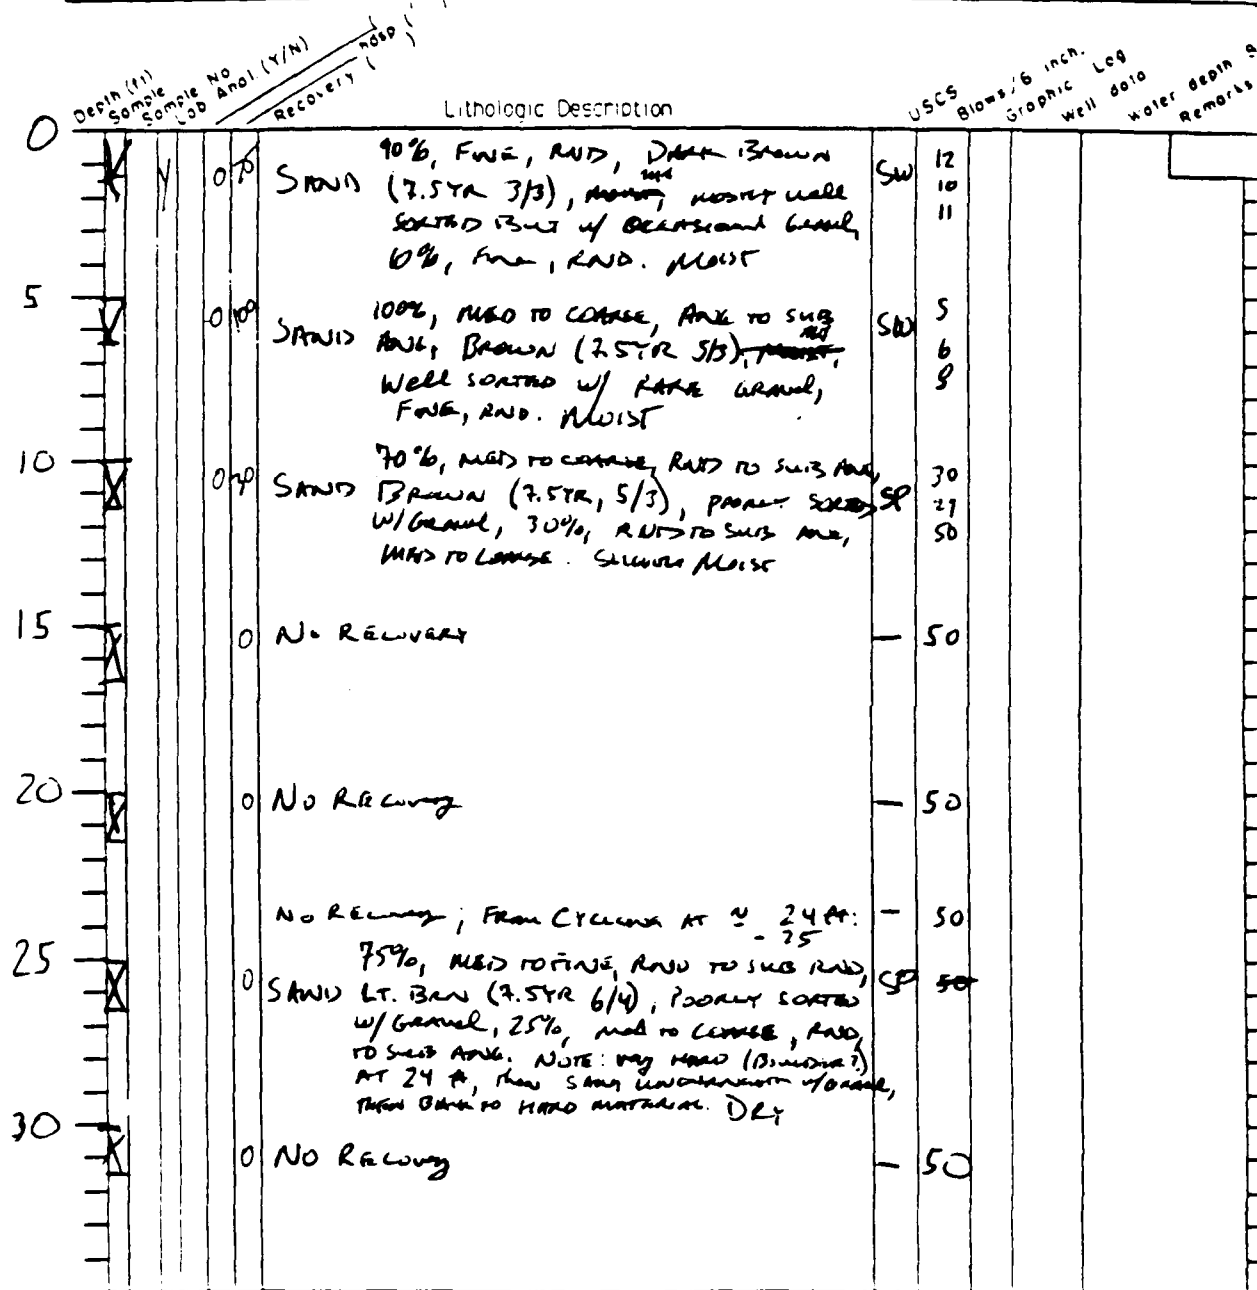 Depth (ft) Sample Sample No Lob Anal. (Y/N) Recovery ( ) hdsp ( ) Lithologic Description USCS Blows/6 inch. Graphic Log Well data Water depth Remarks
0
Y 0 70 SAND 90%, FINE, RND, DARK BROWN SW 12
(7.5YR 3/3), MOSTLY WELL 10
SORTED BUT W/ OCCASIONAL GRAVEL, 11
10%, FINE, RND. MOIST
5
0 100 SAND 100%, MED TO COARSE, ANG TO SUB SW 5
ANG, BROWN (7.5YR 5/3), MOIST, 6
WELL SORTED W/ RARE GRAVEL, 8
FINE, RND. MOIST
10
0 SAND 70%, MED TO COARSE, RND TO SUB ANG, 30
BROWN (7.5YR, 5/3), POORLY SORTED SP 29
W/GRAVEL, 30%, RND TO SUB ANG, 50
MED TO COARSE. MOIST
15
0 NO RECOVERY — 50
20
0 NO RECOVERY — 50
NO RECOVERY; FROM CYCLONE AT ~ 24 FT. – 50
- 25
25
75%, MED TO FINE, RND TO SUB RND,
0 SAND LT. BRN (7.5YR 6/4), POORLY SORTED SP 50
W/GRAVEL, 25%, MED TO COARSE, RND,
TO SUB ANG. NOTE: VERY HARD (BOULDER?)
AT 24 ft, THEN
THEN BACK TO HARD MATERIAL. DRY
30
0 NO RECOVERY — 50